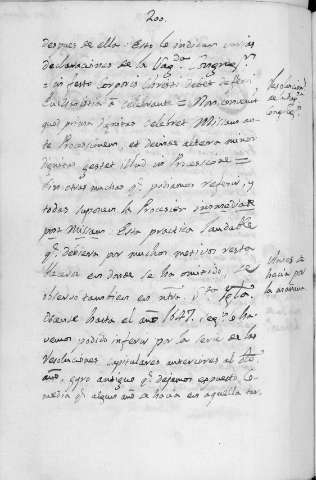 200.
despues de ella. Esto lo indican varias
declaraciones de la Sag.da Congreg.n
= in festo Corporis Christi debet deferri
Eucharistia a celebrante = Non convenit
quod prima dignitas celebret Missam an-
te Processionem, et deinde altera minor
dignitas gestet illud in Processione =
sin otras muchas q.e pudieramos referir, y
todas suponen la Procesion inmediate
post Missam. Esta practica laudable
q.e debiera por muchos motivos resta-
blecerse en donde se ha omitido, se
observo tambien en ntra. S.ta Igl.a
hasta el año 1647, segun ha-
vemos podido inferir por la serie de las
resoluciones capitulares anteriores al dho
año, cuyo antiguo q.e dejamos expuesto, co-
media q.e algun año se hacia en aquella tar-
Antes se
hacia por
la mañana